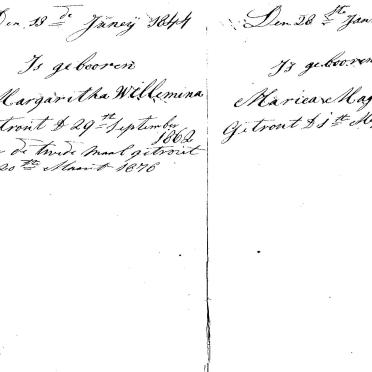 Den 18 de Janeij 1844
Is gebooren
Margaritha Willemina
trouт D 29 th September
1862
de twede maal getrout
20 th Maart 1876
Den 28 st Jan
Is gebooren
Mariea Mag
Getrout D 1 th M